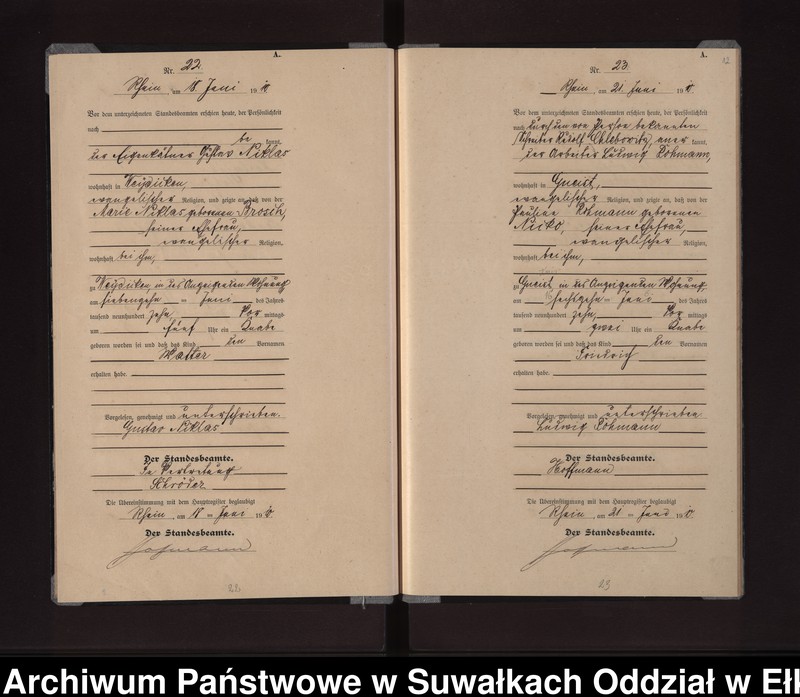 A.
Nr. 22.
Rhein, am 18. Juni 1910
Vor dem unterzeichneten Standesbeamten erschien heute, der Persönlichkeit
nach
be kannt,
der Eigenkätner Gustav Niklas
wohnhaft in Weydicken,
evangelischer Religion, und zeigte an, daß von der
Marie Niklas geborenen Brosch,
seiner Ehefrau,
evangelischer Religion,
wohnhaft bei ihm,
zu Weydicken, in des Anzeigenden Wohnung
am siebenzehn = Juni des Jahres
tausend neunhundert zehn Vor mittags
um fünf Uhr ein Knabe
geboren worden sei und daß das Kind den Vornamen
Walter
erhalten habe.
Vorgelesen, genehmigt und unterschrieben.
Gustav Niklas
Der Standesbeamte.
In Vertretung
Schröder
Die Übereinstimmung mit dem Hauptregister beglaubigt
Rhein, am 18 = Juni 1910.
Der Standesbeamte.
Hofmann
22
A.
12
Nr. 23.
Rhein, am 21. Juni 1910.
Vor dem unterzeichneten Standesbeamten erschien heute, der Persönlichkeit
nach durch den von Person bekannten
Schreiber Rudolf Chlebowitz, aner kannt,
der Arbeiter Ludwig Lohmann,
wohnhaft in Gneist,
evangelischer Religion, und zeigte an, daß von der
Pauline Lohmann geborenen
seiner Ehefrau,
evangelischer Religion,
wohnhaft bei ihm,
zu Gneist, in des Anzeigenden Wohnung
am sechszehn = Juni des Jahres
tausend neunhundert zehn, Vor mittags
um zwei Uhr ein Knabe
geboren worden sei und daß das Kind den Vornamen
Friedrich
erhalten habe.
Vorgelesen, genehmigt und unterschrieben
Ludwig Lohmann
Der Standesbeamte.
Hoffmann
Die Übereinstimmung mit dem Hauptregister beglaubigt
Rhein, am 21 = Juni 1910.
Der Standesbeamte.
Hofmann
23
Archiwum Państwowe w Suwałkach Oddział w Eł